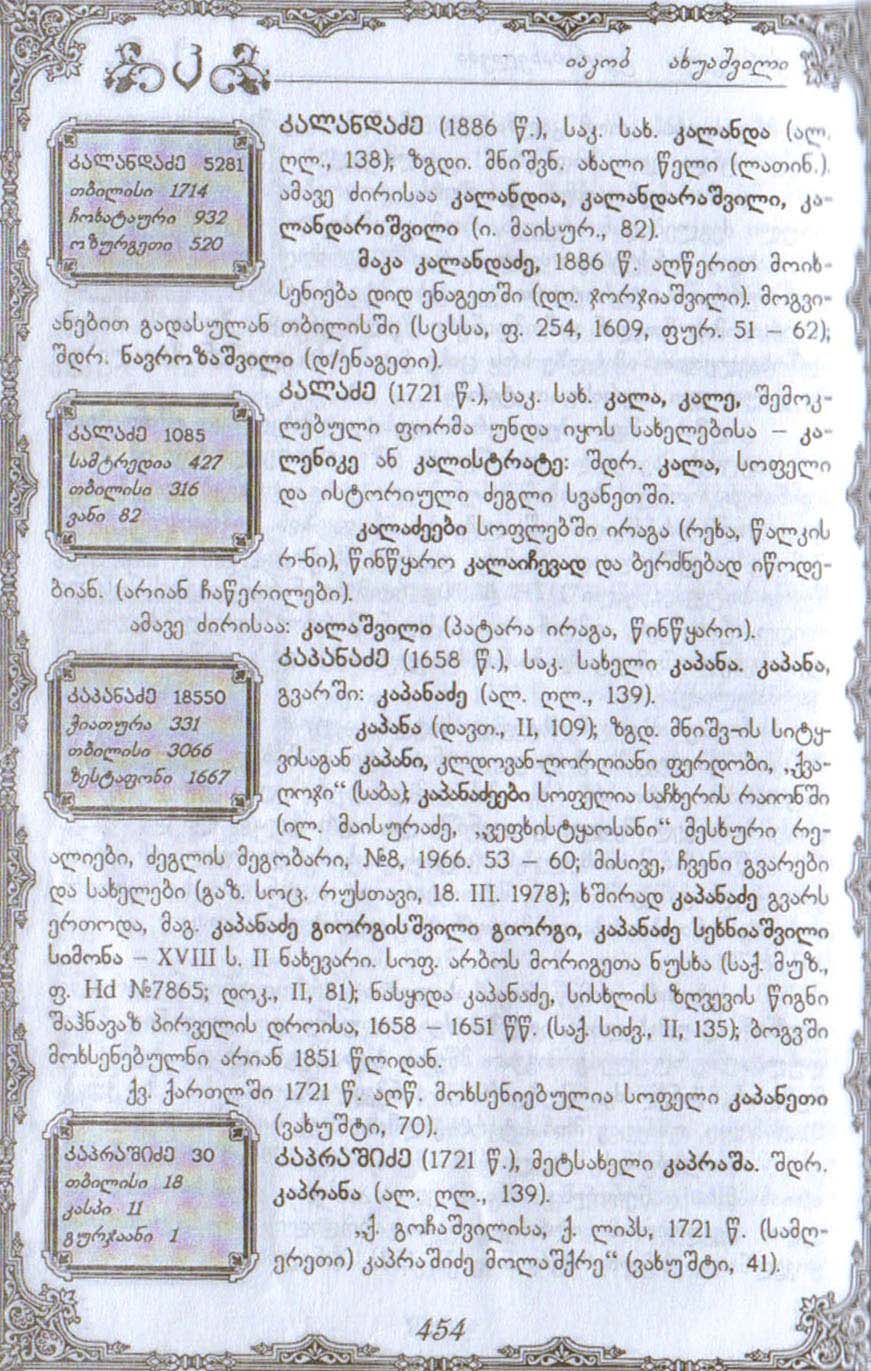 კ
იაკობ ახუაშვილი
კალანდაძე 5281
თბილისი 1714
ჩოხატაური 932
ოზურგეთი 520
კალანდაძე (1886 წ.), საკ. სახ. კალანდა (ალ.
ღლ., 138); ზგდი. მნიშვნ. ახალი წელი (ლათინ.).
ამავე ძირისაა კალანდია, კალანდარაშვილი, კა-
ლანდარიშვილი (ი. მაისურ., 82).
მაკა კალანდაძე, 1886 წ. აღწერით მოიხ-
სენიება დიდ ენაგეთში (დღ. ჯორჯიაშვილი). მოგვი-
ანებით გადასულან თბილისში (სცსსა, ფ. 254, 1609, ფურ. 51 – 62);
შდრ. ნავროზაშვილი (დ/ენაგეთი).
კალაძე 1085
სამტრედია 427
თბილისი 316
ვანი 82
კალაძე (1721 წ.), საკ. სახ. კალა, კალე, შემოკ-
ლებული ფორმა უნდა იყოს სახელებისა – კა-
ლენიკე ან კალისტრატე: შდრ. კალა, სოფელი
და ისტორიული ძეგლი სვანეთში.
კალაძეები სოფლებში ირაგა (რეხა, წალკის
რ-ნი), წინწყარო კალაიჩევად და ბერძნებად იწოდე-
ბიან. (არიან ჩაწერილები).
ამავე ძირისაა: კალაშვილი (პატარა ირაგა, წინწყარო).
კაპანაძე 18550
ჭიათურა 331
თბილისი 3066
ზესტაფონი 1667
კაპანაძე (1658 წ.) საკ. სახელი კაპანა. კაპანა,
გვარში: კაპანაძე (ალ. ღლ., 139).
კაპანა (დავთ., II, 109); ზგდ. მნიშვ-ის სიტყ-
ვისაგან კაპანი, კლდოვან-ღორღიანი ფერდობი, „ქვა-
ღოჯი“ (საბა); კაპანაძეები სოფელია საჩხერის რაიონში
(ილ. მაისურაძე, „ვეფხისტყაოსანი“ მესხური რე-
ალიები, ძეგლის მეგობარი, №8, 1966. 53 – 60; მისივე, ჩვენი გვარები
და სახელები (გაზ. სოც. რუსთავი, 18. III. 1978); ხშირად კაპანაძე გვარს
ერთოდა, მაგ. კაპანაძე გიორგისშვილი გიორგი, კაპანაძე სეხნიაშვილი
სიმონა – XVIII ს. II ნახევარი. სოფ. არბოს მორიგეთა ნუსხა (საქ. მუზ.,
ფ. Hd №7865; დოკ., II, 81); ნასყიდა კაპანაძე, სისხლის ზღვევის წიგნი
შაჰნავაზ პირველის დროისა, 1658 – 1651 წწ. (საქ. სიძვ., II, 135); ბოგვში
მოხსენებულნი არიან 1851 წლიდან.
ქვ. ქართლში 1721 წ. აღწ. მოხსენიებულია სოფელი კაპანეთი
(ვახუშტი, 70).
კაპრაშიძე 30
თბილისი 18
კასპი 11
გურჯაანი 1
კაპრაშიძე (1721 წ.), მეტსახელი კაპრაშა. შდრ.
კაპრანა (ალ. ღლ., 139).
„ქ. გოჩაშვილისა, ქ. ლიპს, 1721 წ. (სამღ-
ერეთი) კაპრაშიძე მოლაშქრე“ (ვახუშტი, 41).
454